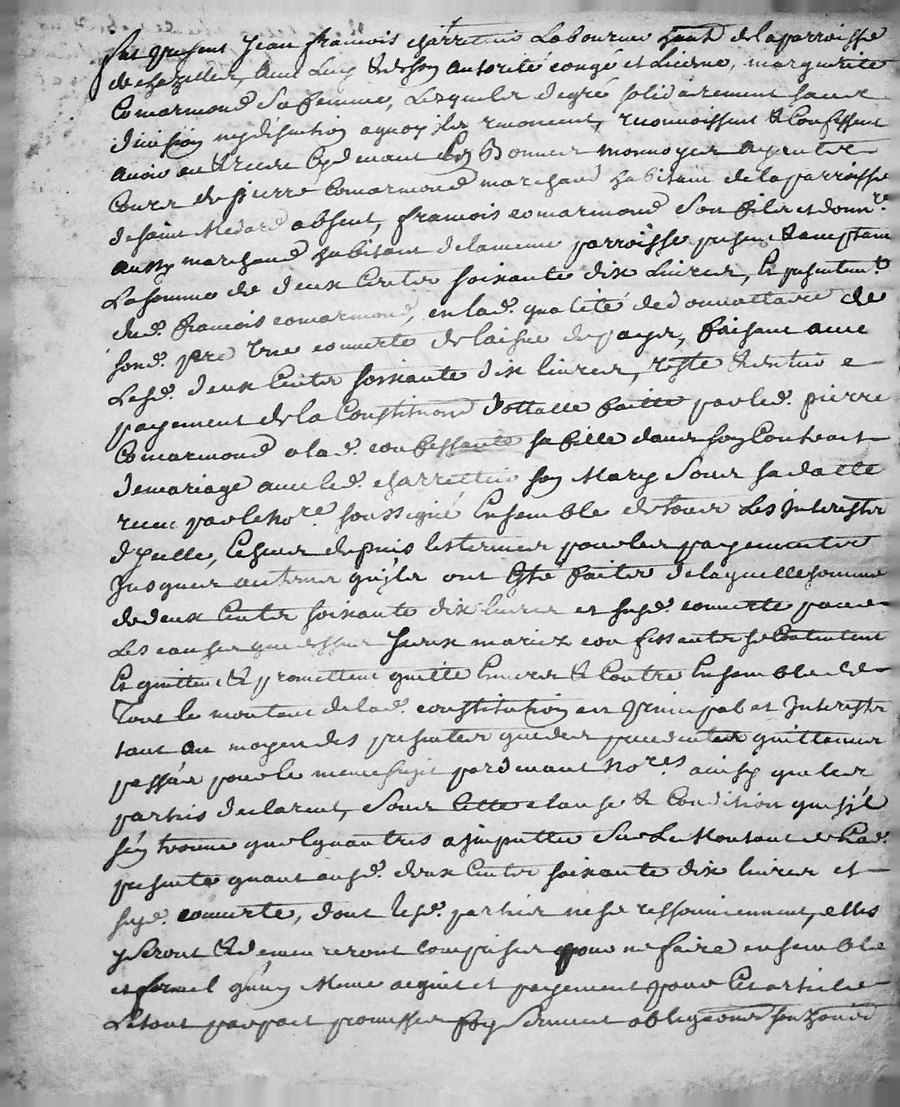 fut present Jean francois charretier Laboureur habt de la parroisse
de chazelles, avec Luy & de son autorité congé et Licence, marguerite
Comarmond sa femme, Lesquels de gré solidairement sans
division ny discution a quoy ils renoncent, reconnoissent & Confessent
avoir eu & receu Cy devant En Bonne monnoyes ayant
Cours de pierre Comarmond marchand habitant de la parroisse
de saint Medard absent, francois comarmond son fils et donnre
aussy marchand habitant de la meme parroisse present & acceptant
La somme de deux Cents soixante dix Livres, Et presentemt
dud. francois comarmond, en lad. qualité de donnattaire de
sond. pere Une couverte de laisne de pays, faisant avec
Lesd. deux Cents soixante dix livres, reste & entier
payement de la Constitution dottalle faitte par led. pierre
Comarmond a lad. confessante sa fille dans son Contract
de mariage avec led. charrettier son Mary Sous sa datte
receu par le nore. soussigné Ensemble de tous Les Interests
d'ycelle, Echeus depuis les termes pour les payements
Jusques au terme qu'ils ont Esté faits de laquelle somme
de deux Cents soixante dix livres et susd. couverte pour
Les causes que dessus Iceux mariez confessants se Contentent
En quittent & promettent quitte Envers & Contre Ensemble de
Tout le montant de lad. constitution en principal et Interests
tant au moyen des presentes que des precedentes quittances
passées pour le meme sujet pardevant nores ainsy que les
partis declarent, Sous Cette clause & Condition que s'il
s'en trouve quelqu'autres a imputter Sur Le Montant de La d.
presente quant ausd. deux Cents soixante dix livres et
susd. couverte, dont lesd. parties ne se ressouviennent, elles
y seront & demeureront comprises pour ne faire ensemble
et qu'un Meme acquit et payement pour Cet article
Le tout par pact promesses foy serment obligations